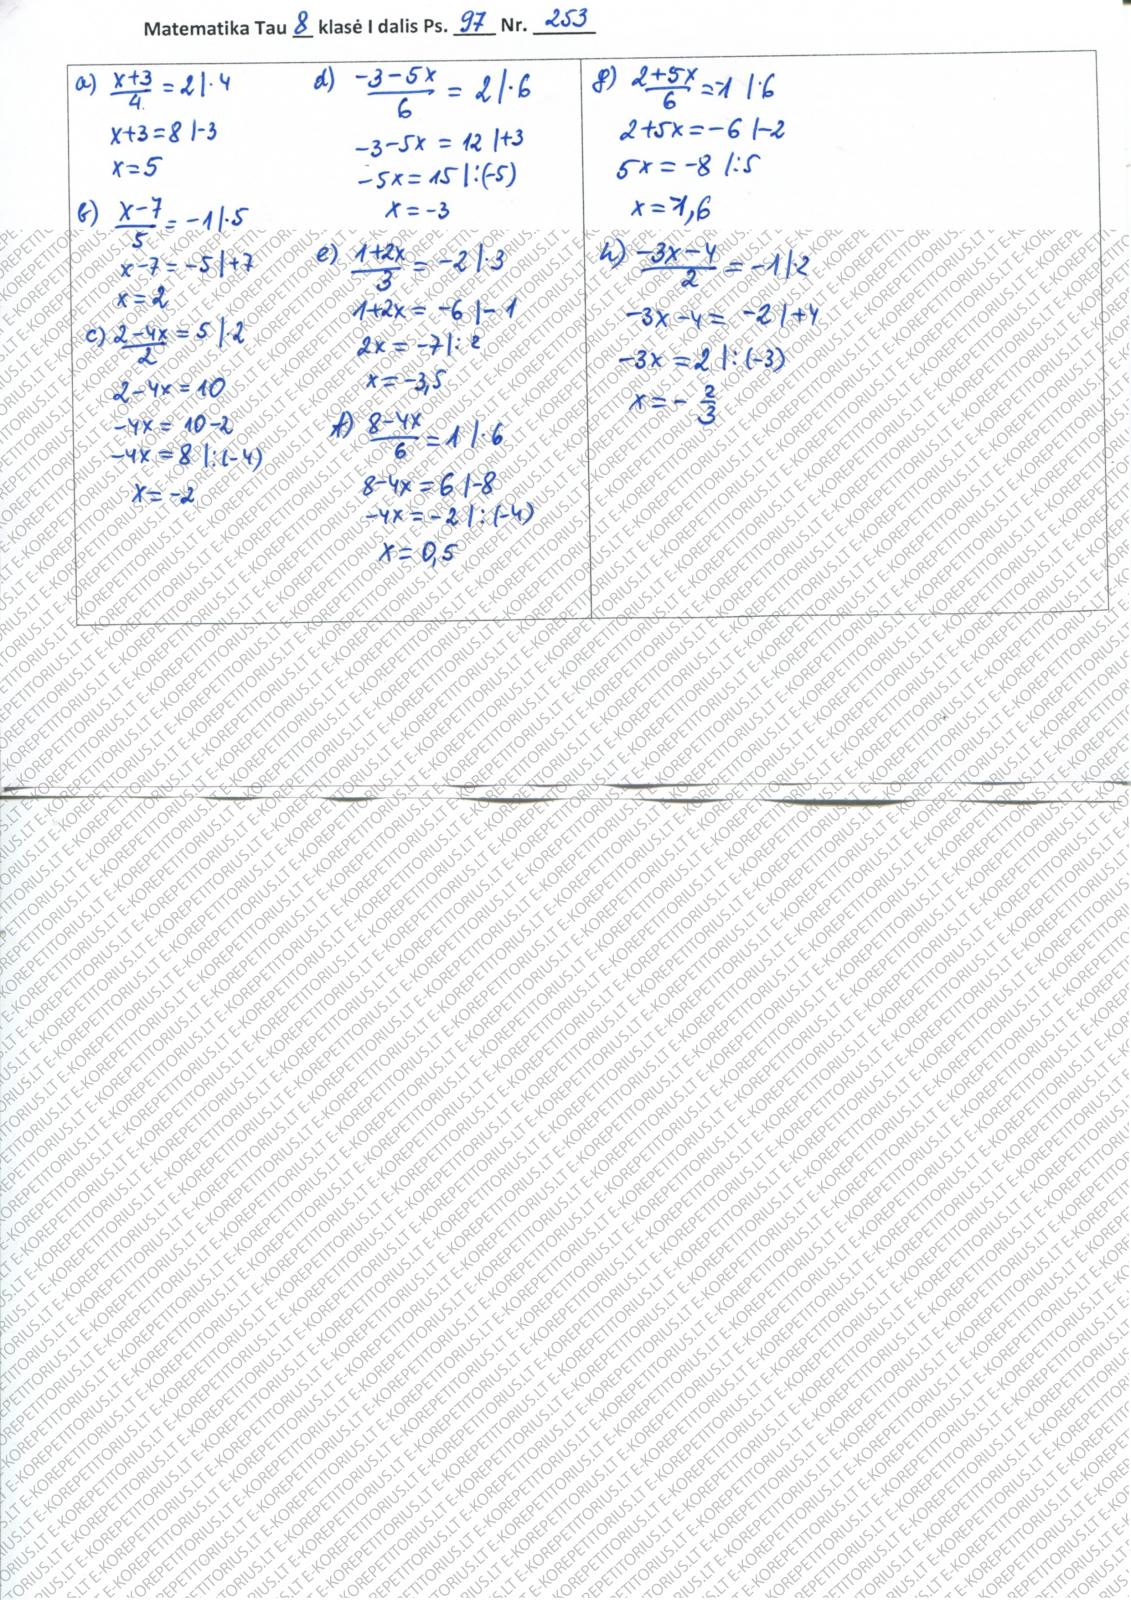 Matematika Tau 8 klasė I dalis Ps. 97 Nr. 253
a) (x+3)/4 = 2 |·4
x+3 = 8 |-3
x = 5
b) (x-7)/5 = -1 |·5
x-7 = -5 |+7
x = 2
c) (2-4x)/2 = 5 |·2
2-4x = 10
-4x = 10-2
-4x = 8 |:(-4)
x = -2
d) (-3-5x)/6 = 2 |·6
-3-5x = 12 |+3
-5x = 15 |:(-5)
x = -3
e) (1+2x)/3 = -2 |·3
1+2x = -6 |-1
2x = -7 |:2
x = -3,5
f) (8-4x)/6 = 1 |·6
8-4x = 6 |-8
-4x = -2 |:(-4)
x = 0,5
g) (2+5x)/6 = -1 |·6
2+5x = -6 |-2
5x = -8 |:5
x = -1,6
h) (-3x-4)/2 = -1 |·2
-3x-4 = -2 |+4
-3x = 2 |:(-3)
x = -2/3
E-KOREPETITORIUS.LT